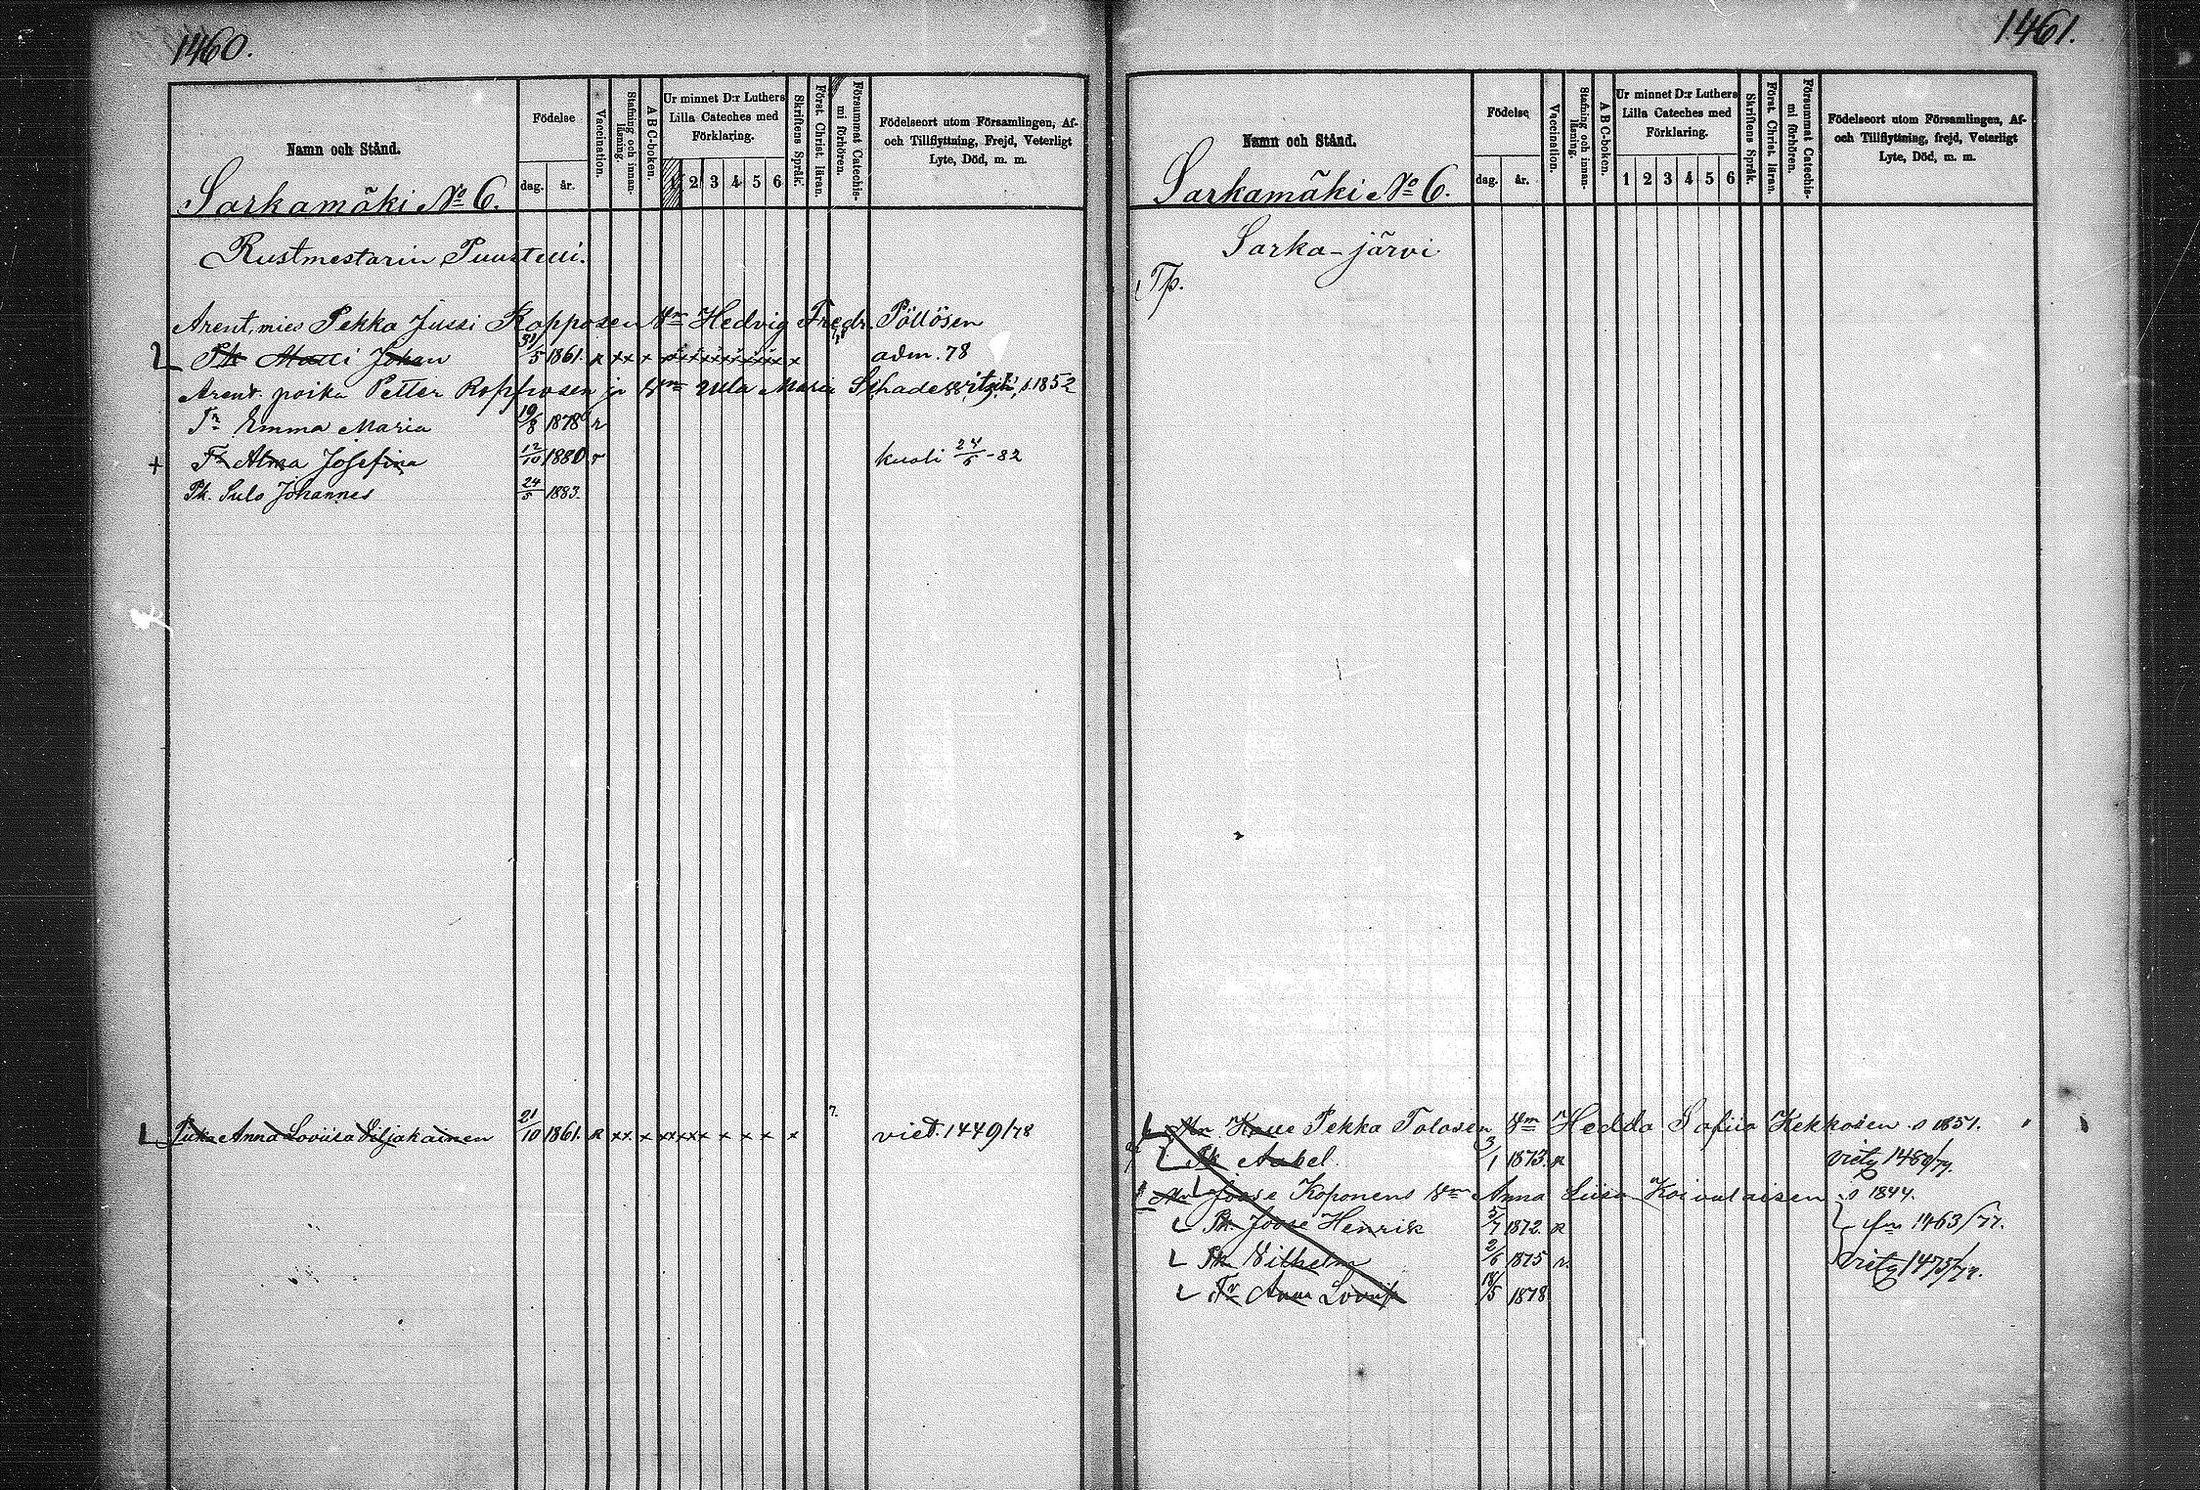 1460.
Namn och Stånd.
Födelse
dag.
år.
Vaccination.
Stafning och innan-läsning.
A B C-boken.
Ur minnet D:r Luthers
Lilla Cateches med
Förklaring.
1 2 3 4 5 6
Skriftens Språk.
Först. Christ. läran.
Försummat Catechis-
mi förhören.
Födelseort utom Församlingen, Af-
och Tillflyttning, Frejd, Veterligt
Lyte, Död, m. m.
Sarkamäki No 6.
Rustmestarin Puustelli.
Arent. mies Pekka Jussi Ropposen Vm Hedvig Fredr. Pöllösen
Pk Matti Johan 31/5 1861. x xx x xxxxxxxxxx x adm. 78
Arent. poika Petter Ropposen ja Vm Ulla Maria s. 1852
Tr Emma Maria 19/8 1878 r
+ Tr Alma Josefina 12/10 1880 r kuoli 24/5 -82
Pk. Sulo Johannes 24/5 1883.
Anna Loviisa Siljakainen 21/10 1861. x xx x xxxx x x x x x 7. viet. 1449/78
1461.
Namn och Stånd.
Födelse
dag.
år.
Vaccination.
Stafning och innan-läsning.
A B C-boken.
Ur minnet D:r Luthers
Lilla Cateches med
Förklaring.
1 2 3 4 5 6
Skriftens Språk.
Först. Christ. läran.
Försummat Catechis-
mi förhören.
Födelseort utom Församlingen, Af-
och Tillflyttning, frejd, Veterligt
Lyte, Död, m. m.
Sarkamäki No 6.
Sarka-järvi
Tp.
Mn Pekka Tolosen Vm Hedda Sofiia Kekkosen s 1851.
Pk Aabel. 3/1 1873. x viety 1480/79.
Mn Joose Koponens Vm Anna Liisa Koivulaisen s 1844.
Pk Joose Henrik 5/7 1872. x 1463/77.
Pk Vilhelm 2/6 1875 r. viety 1475/79.
Tr Anna Loviisa 18/5 1878